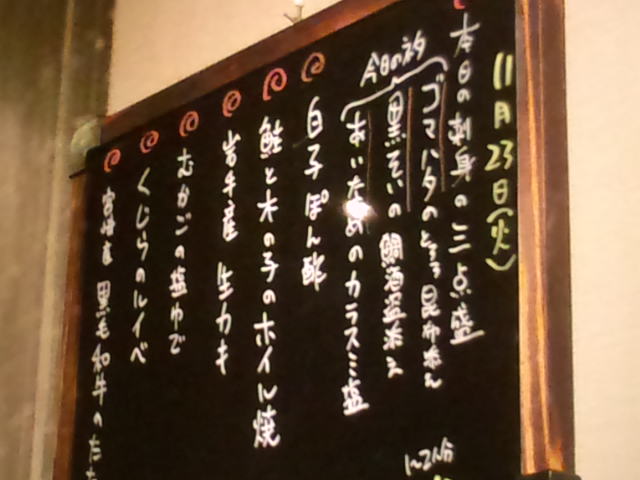 11月23日(火)
本日の刺身の三点盛
今日のネタ
ゴマハタのとろろ昆布添え
黒そいの鯛酒盗添え
あいなめのカラスミ塩
1~2人分
白子ぽん酢
鮭と木の子のホイル焼
岩手産 生カキ
むかごの塩ゆで
くじらのルイベ
宮崎産 黒毛和牛のたた